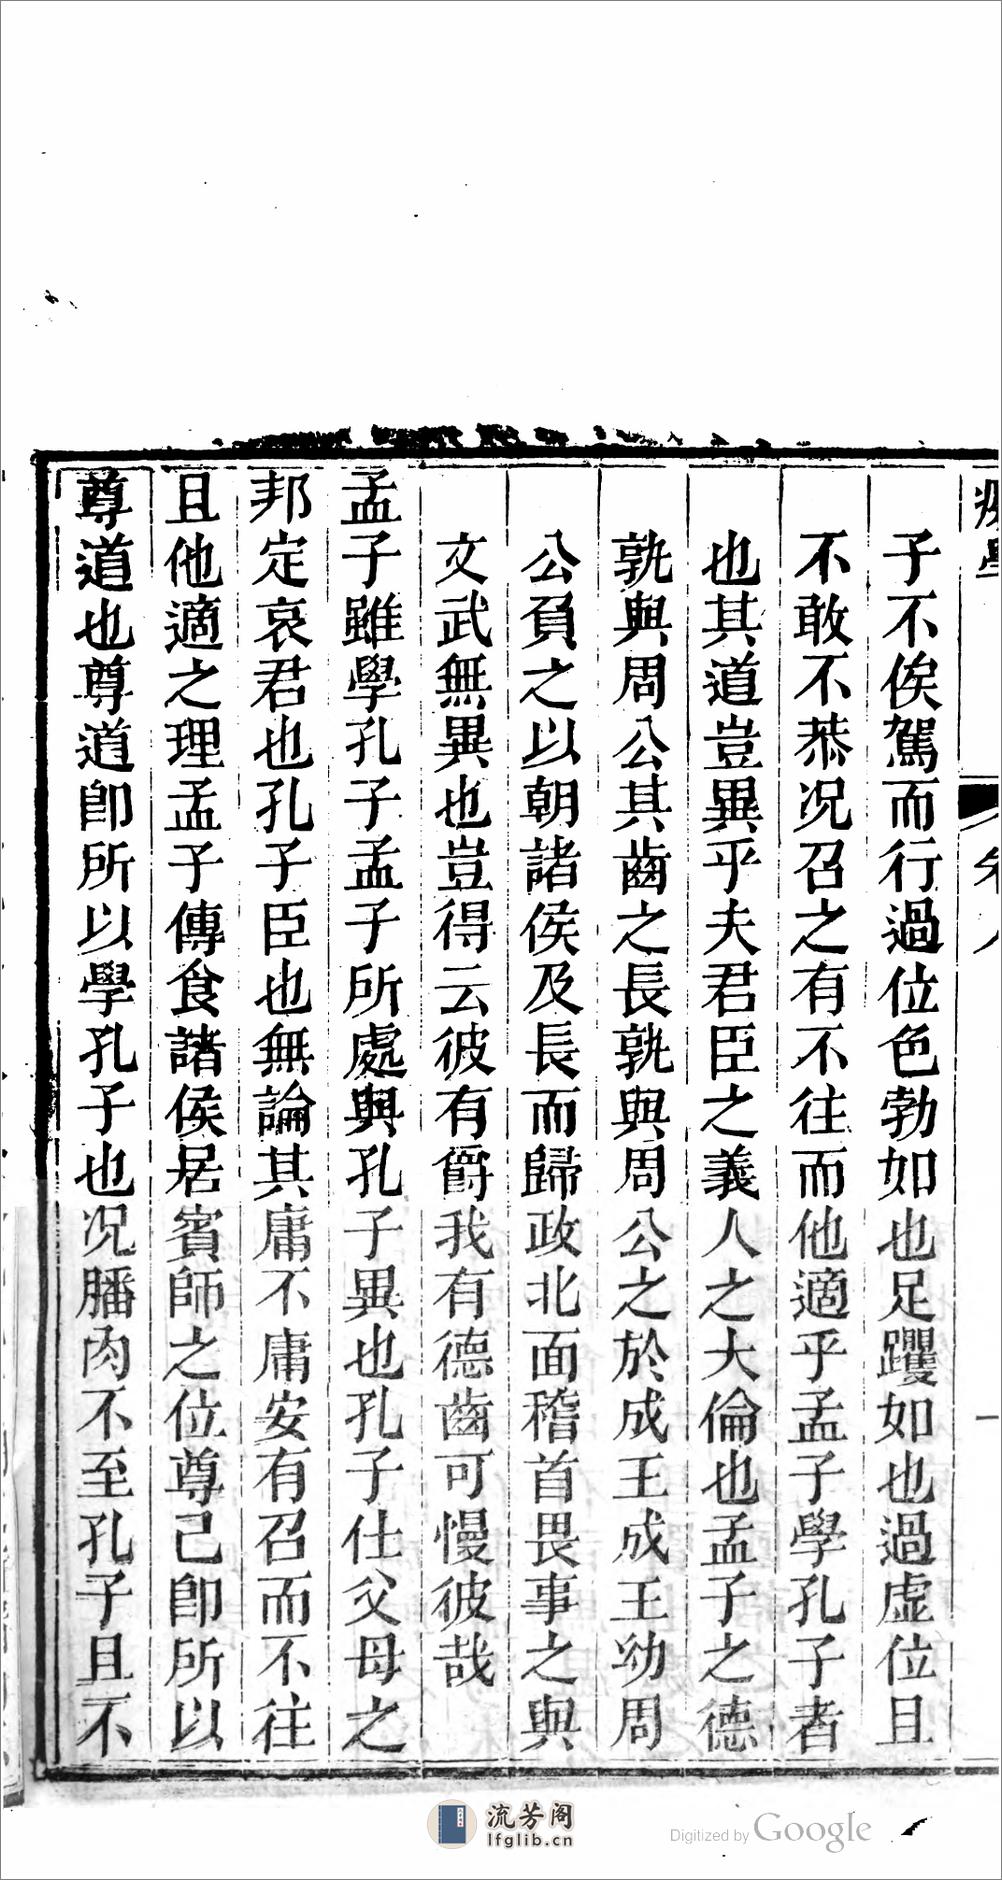 子不俟駕而行過位色勃如也足躩如也過虛位且
不敢不恭况召之有不往而他適乎孟子學孔子者
也其道豈異乎夫君臣之義人之大倫也孟子之德
孰與周公其齒之長孰與周公之於成王成王幼周
公負之以朝諸侯及長而歸政北面稽首畏事之與
文武無異也豈得云彼有爵我有德齒可慢彼哉
孟子雖學孔子孟子所處與孔子異也孔子仕父母之
邦定哀君也孔子臣也無論其庸不庸安有召而不往
且他適之理孟子傳食諸侯居賓師之位尊己卽所以
尊道也尊道卽所以學孔子也况膰肉不至孔子且不
流芳阁
lfglib.cn
Digitized by Google